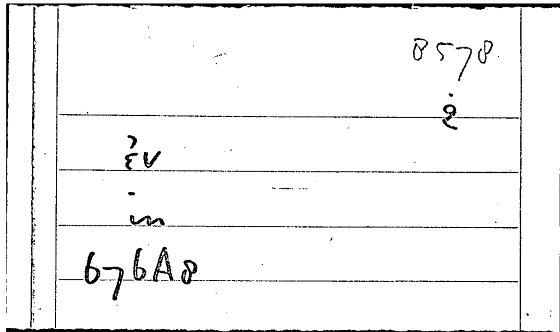 8578
ἐν
in
676A8